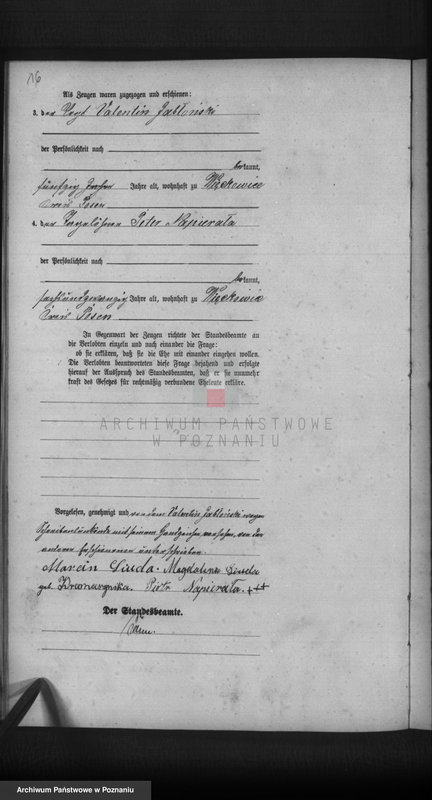 16
Als Zeugen waren zugezogen und erschienen:
3. der Vogt Valentin Jabłoński
der Persönlichkeit nach
bekannt,
fünfzig Jahre alt, wohnhaft zu Więckowice
Kreis Posen
4. der Tagelöhner Peter Napierała
der Persönlichkeit nach
bekannt,
sechsundzwanzig Jahre alt, wohnhaft zu Więckowice
Kreis Posen
In Gegenwart der Zeugen richtete der Standesbeamte an
die Verlobten einzeln und nach einander die Frage:
ob sie erklären, daß sie die Ehe mit einander eingehen wollen.
Die Verlobten beantworteten diese Frage bejahend und erfolgte
hierauf der Ausspruch des Standesbeamten, daß er sie nunmehr
kraft des Gesetzes für rechtmäßig verbundene Eheleute erkläre.
ARCHIWUM PAŃSTWOWE
W POZNANIU
Vorgelesen, genehmigt und von dem Valentin Jabłoński wegen
Schreibensunkunde mit seinem Handzeichen versehen, von den
anderen Erschienenen unterschrieben.
Marcin Magdalena
geb. Piotr Napierała. +++
Der Standesbeamte.
Archiwum Państwowe w Poznaniu